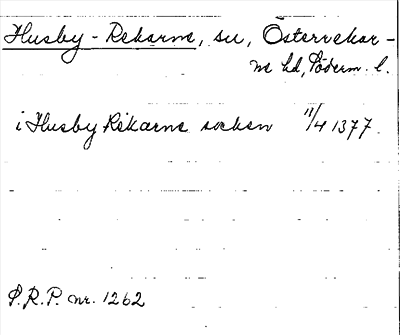 Husby-Rekarne, sn, Österrekar-
ne hd, Söderm. l.
i Husby Rekarne socken 11/4 1377.
S.R.P. nr. 1262